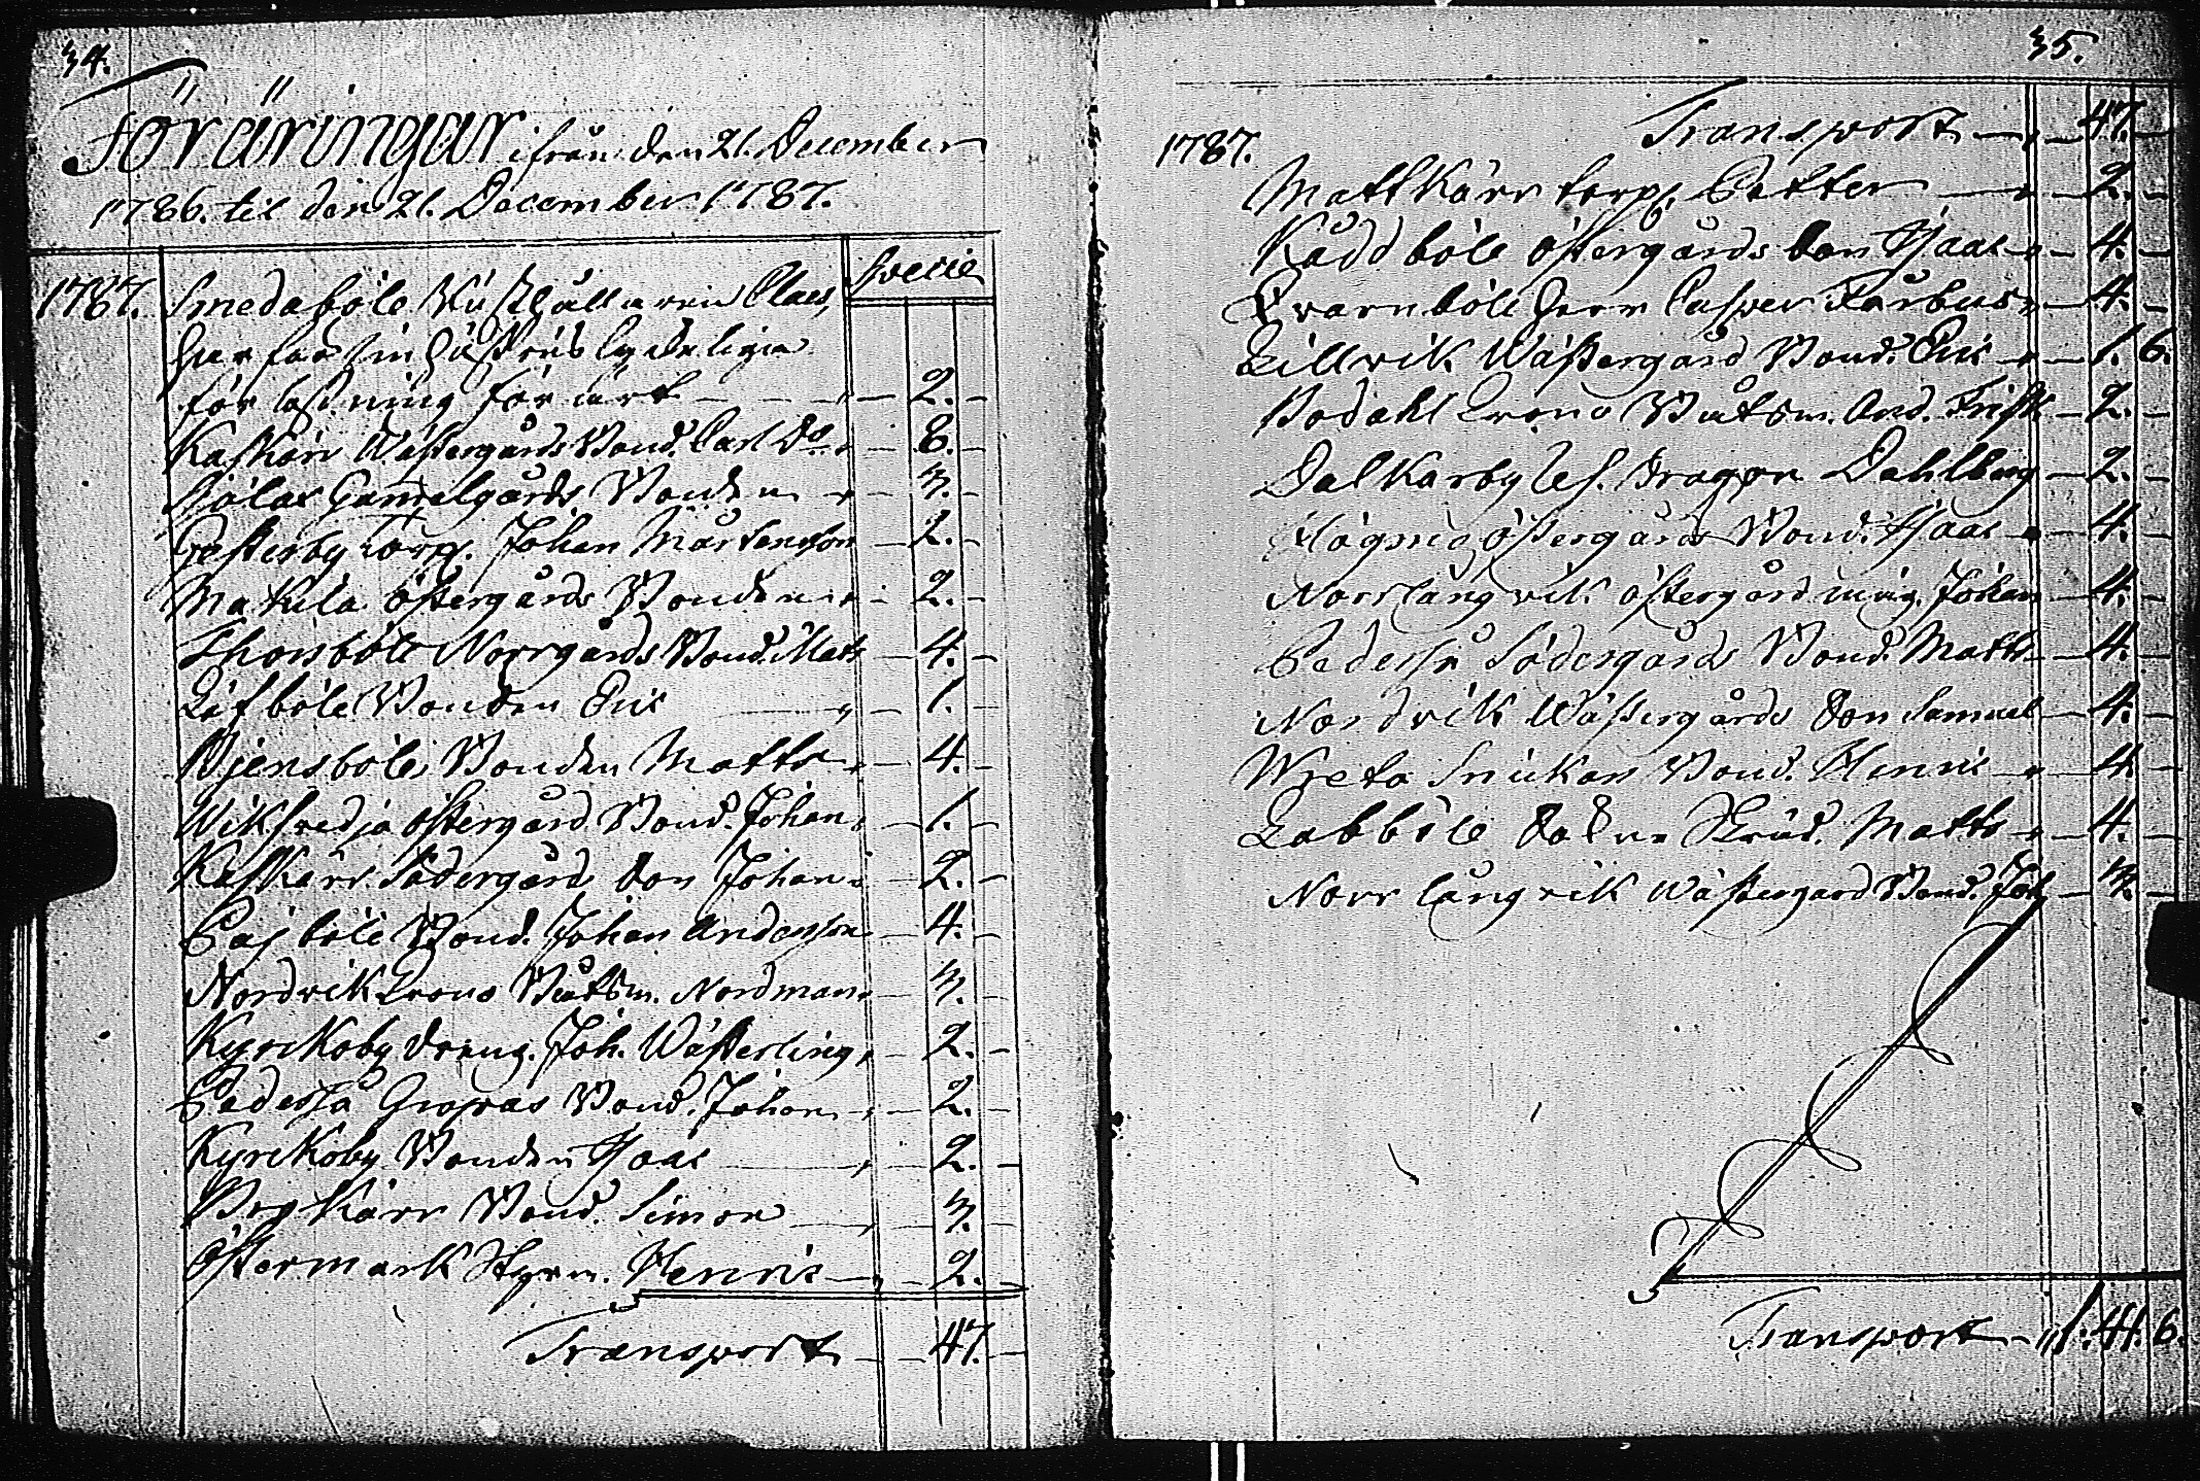 34.
Föräringar ifrån den 21. December
1786. til den 21. December 1787.
Specie
1787. Smedaböle Rusthållaren Claes,
har för sin Hustrus lyckeliga
förlossning förärt — 2. —
Kaskärr Wästergårds Bond. Carl Do — 8. —
Gammelgårds Bonden — 3. —
Gesterby Torp. Johan Mårtensson — 2. —
Makila östergårds Bonden — 2. —
Thorsböle Norrgårds Bond. Mats — 4. —
Löfböle Bonden Eric — 1. —
Bjensböle Bonden Matts — 4. —
Östergård Bond. Johan — 1. —
Kaskärr Södergård Son Johan — 2. —
Pajböle Bond. Johan Andersson — 4. —
Nordvik Crono Båtsm. Nordman — 3. —
Kyrckoby dräng. Joh. Wästerling — 2. —
Pederså Gropas Bond. Johan — 2. —
Kyrckoby Bonden Isaac — 2. —
kärr Bond. Simon — 3. —
Östermark Styrm. Henric — 2. —
Transport — 47. —
35.
1787. Transport — 47. —
Mattkärr torp. Petter — 2. —
Kåddböle östergårds Son Isaac — 4. —
Qvarnböle Herr Casper Forbus — 4. —
Lillvik Wästergård Bond. Eric — 1. 6.
Bodahl Crono Båtsm. And. Frisk — 2. —
Dalkarby Dragon Dahlberg — 2. —
Högmo östergårds Bond. Isaac — 4. —
Norrlångvik östergård Johan — 4. —
Pederså Södergårds Bond. Matts — 4. —
Nordvik Wästergårds Son Samuel — 4. —
Wreta Snickars Bond. Henric — 4. —
Labböle Matts — 4. —
Norrlångvik Wästergård Bond. Joh — 3. —
Transport — 1. 41. 6.